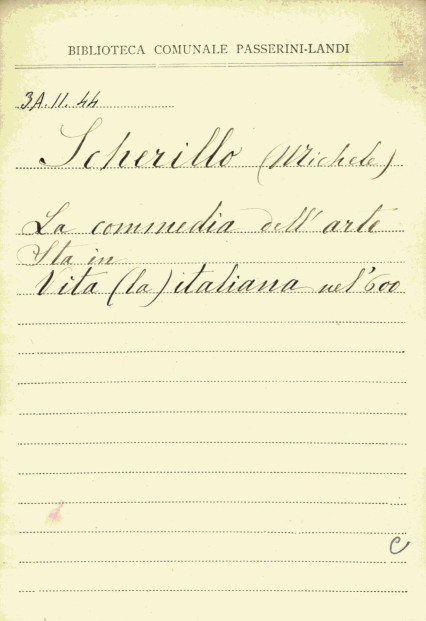 BIBLIOTECA COMUNALE PASSERINI-LANDI
3A.11.44
Scherillo (Michele)
La commedia dell'arte
Sta in
Vita (la) italiana nel '600
C